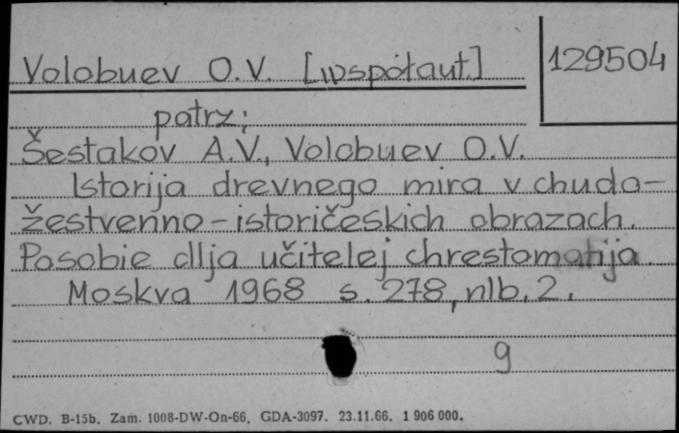 Volobuev O.V. [współaut.]
129504
patrz:
Šestakov A.V., Volobuev O.V.
Istorija drevnego mira v chudo-
žestvenno-istoričeskich obrazach.
Posobie dlja učitelej chrestomatija.
Moskva 1968 s. 278, nlb. 2.
9
CWD. B-15b. Zam. 1008-DW-On-66. GDA-3097. 23.11.66. 1 906 000.